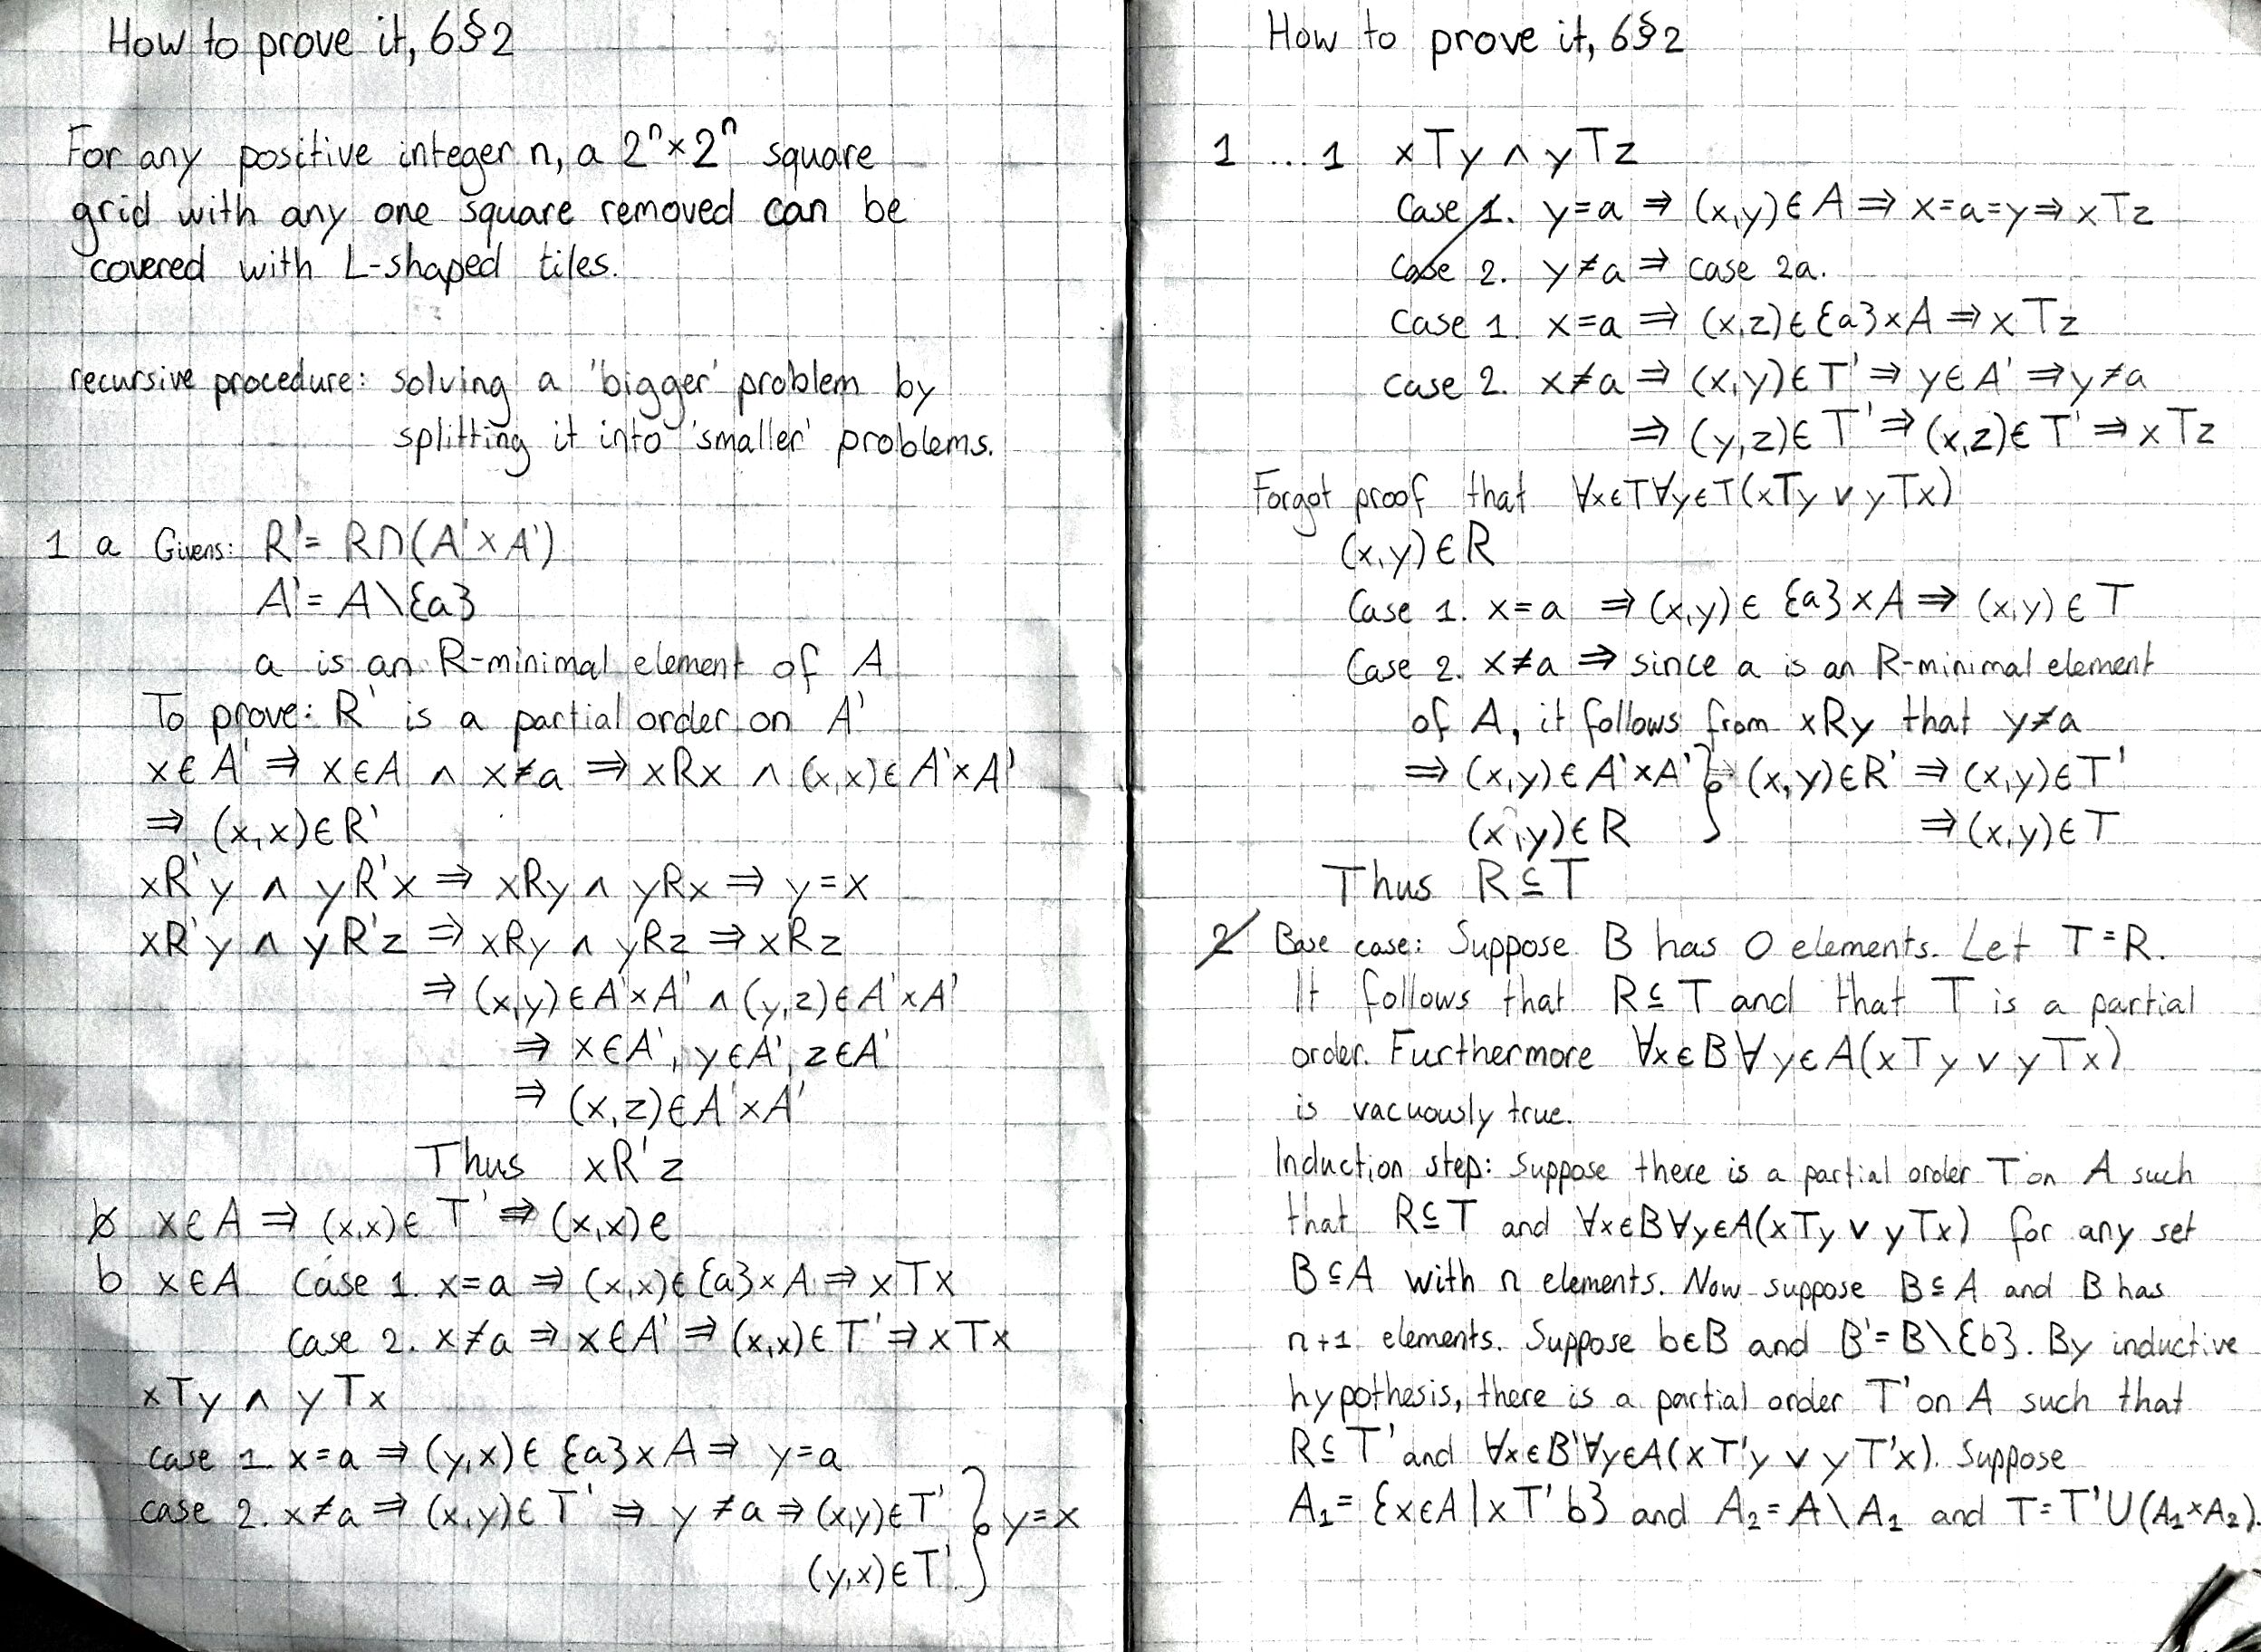 How to prove it, 6§2
For any positive integer n, a 2ⁿ×2ⁿ square
grid with any one square removed can be
covered with L-shaped tiles.
recursive procedure: solving a 'bigger' problem by
splitting it into 'smaller' problems.
1 a Givens: R' = R∩(A'×A')
A' = A\{a}
a is an R-minimal element of A
To prove: R' is a partial order on A'
x∈A' ⇒ x∈A ∧ x≠a ⇒ xRx ∧ (x,x)∈A'×A'
⇒ (x,x)∈R'
xR'y ∧ yR'x ⇒ xRy ∧ yRx ⇒ y=x
xR'y ∧ yR'z ⇒ xRy ∧ yRz ⇒ xRz
⇒ (x,y)∈A'×A' ∧ (y,z)∈A'×A'
⇒ x∈A', y∈A', z∈A'
⇒ (x,z)∈A'×A'
Thus xR'z
b x∈A ⇒ (x,x)∈T' ⇒ (x,x)∈
b x∈A Case 1. x=a ⇒ (x,x)∈{a}×A ⇒ xTx
Case 2. x≠a ⇒ x∈A' ⇒ (x,x)∈T' ⇒ xTx
xTy ∧ yTx
case 1. x=a ⇒ (y,x)∈{a}×A ⇒ y=a
case 2. x≠a ⇒ (x,y)∈T' ⇒ y≠a ⇒ (x,y)∈T' } y=x
(y,x)∈T'
How to prove it, 6§2
1 ...1 xTy ∧ yTz
Case 1. y=a ⇒ (x,y)∈A ⇒ x=a=y ⇒ xTz
Case 2. y≠a ⇒ case 2a.
Case 1. x=a ⇒ (x,z)∈{a}×A ⇒ xTz
case 2. x≠a ⇒ (x,y)∈T' ⇒ y∈A' ⇒ y≠a
⇒ (y,z)∈T' ⇒ (x,z)∈T' ⇒ xTz
Forgot proof that ∀x∈T∀y∈T(xTy ∨ yTx)
(x,y)∈R
Case 1. x=a ⇒ (x,y)∈{a}×A ⇒ (x,y)∈T
Case 2. x≠a ⇒ since a is an R-minimal element
of A, it follows from xRy that y≠a
⇒ (x,y)∈A'×A' } ⇒ (x,y)∈R' ⇒ (x,y)∈T'
(x,y)∈R ⇒ (x,y)∈T
Thus R⊆T
2 Base case: Suppose B has 0 elements. Let T=R.
It follows that R⊆T and that T is a partial
order. Furthermore ∀x∈B∀y∈A(xTy ∨ yTx)
is vacuously true.
Induction step: Suppose there is a partial order T on A such
that R⊆T and ∀x∈B∀y∈A(xTy ∨ yTx) for any set
B⊆A with n elements. Now suppose B⊆A and B has
n+1 elements. Suppose b∈B and B'=B\{b}. By inductive
hypothesis, there is a partial order T' on A such that
R⊆T' and ∀x∈B'∀y∈A(xT'y ∨ yT'x). Suppose
A₁={x∈A|xT'b} and A₂=A\A₁ and T=T'∪(A₁×A₂).